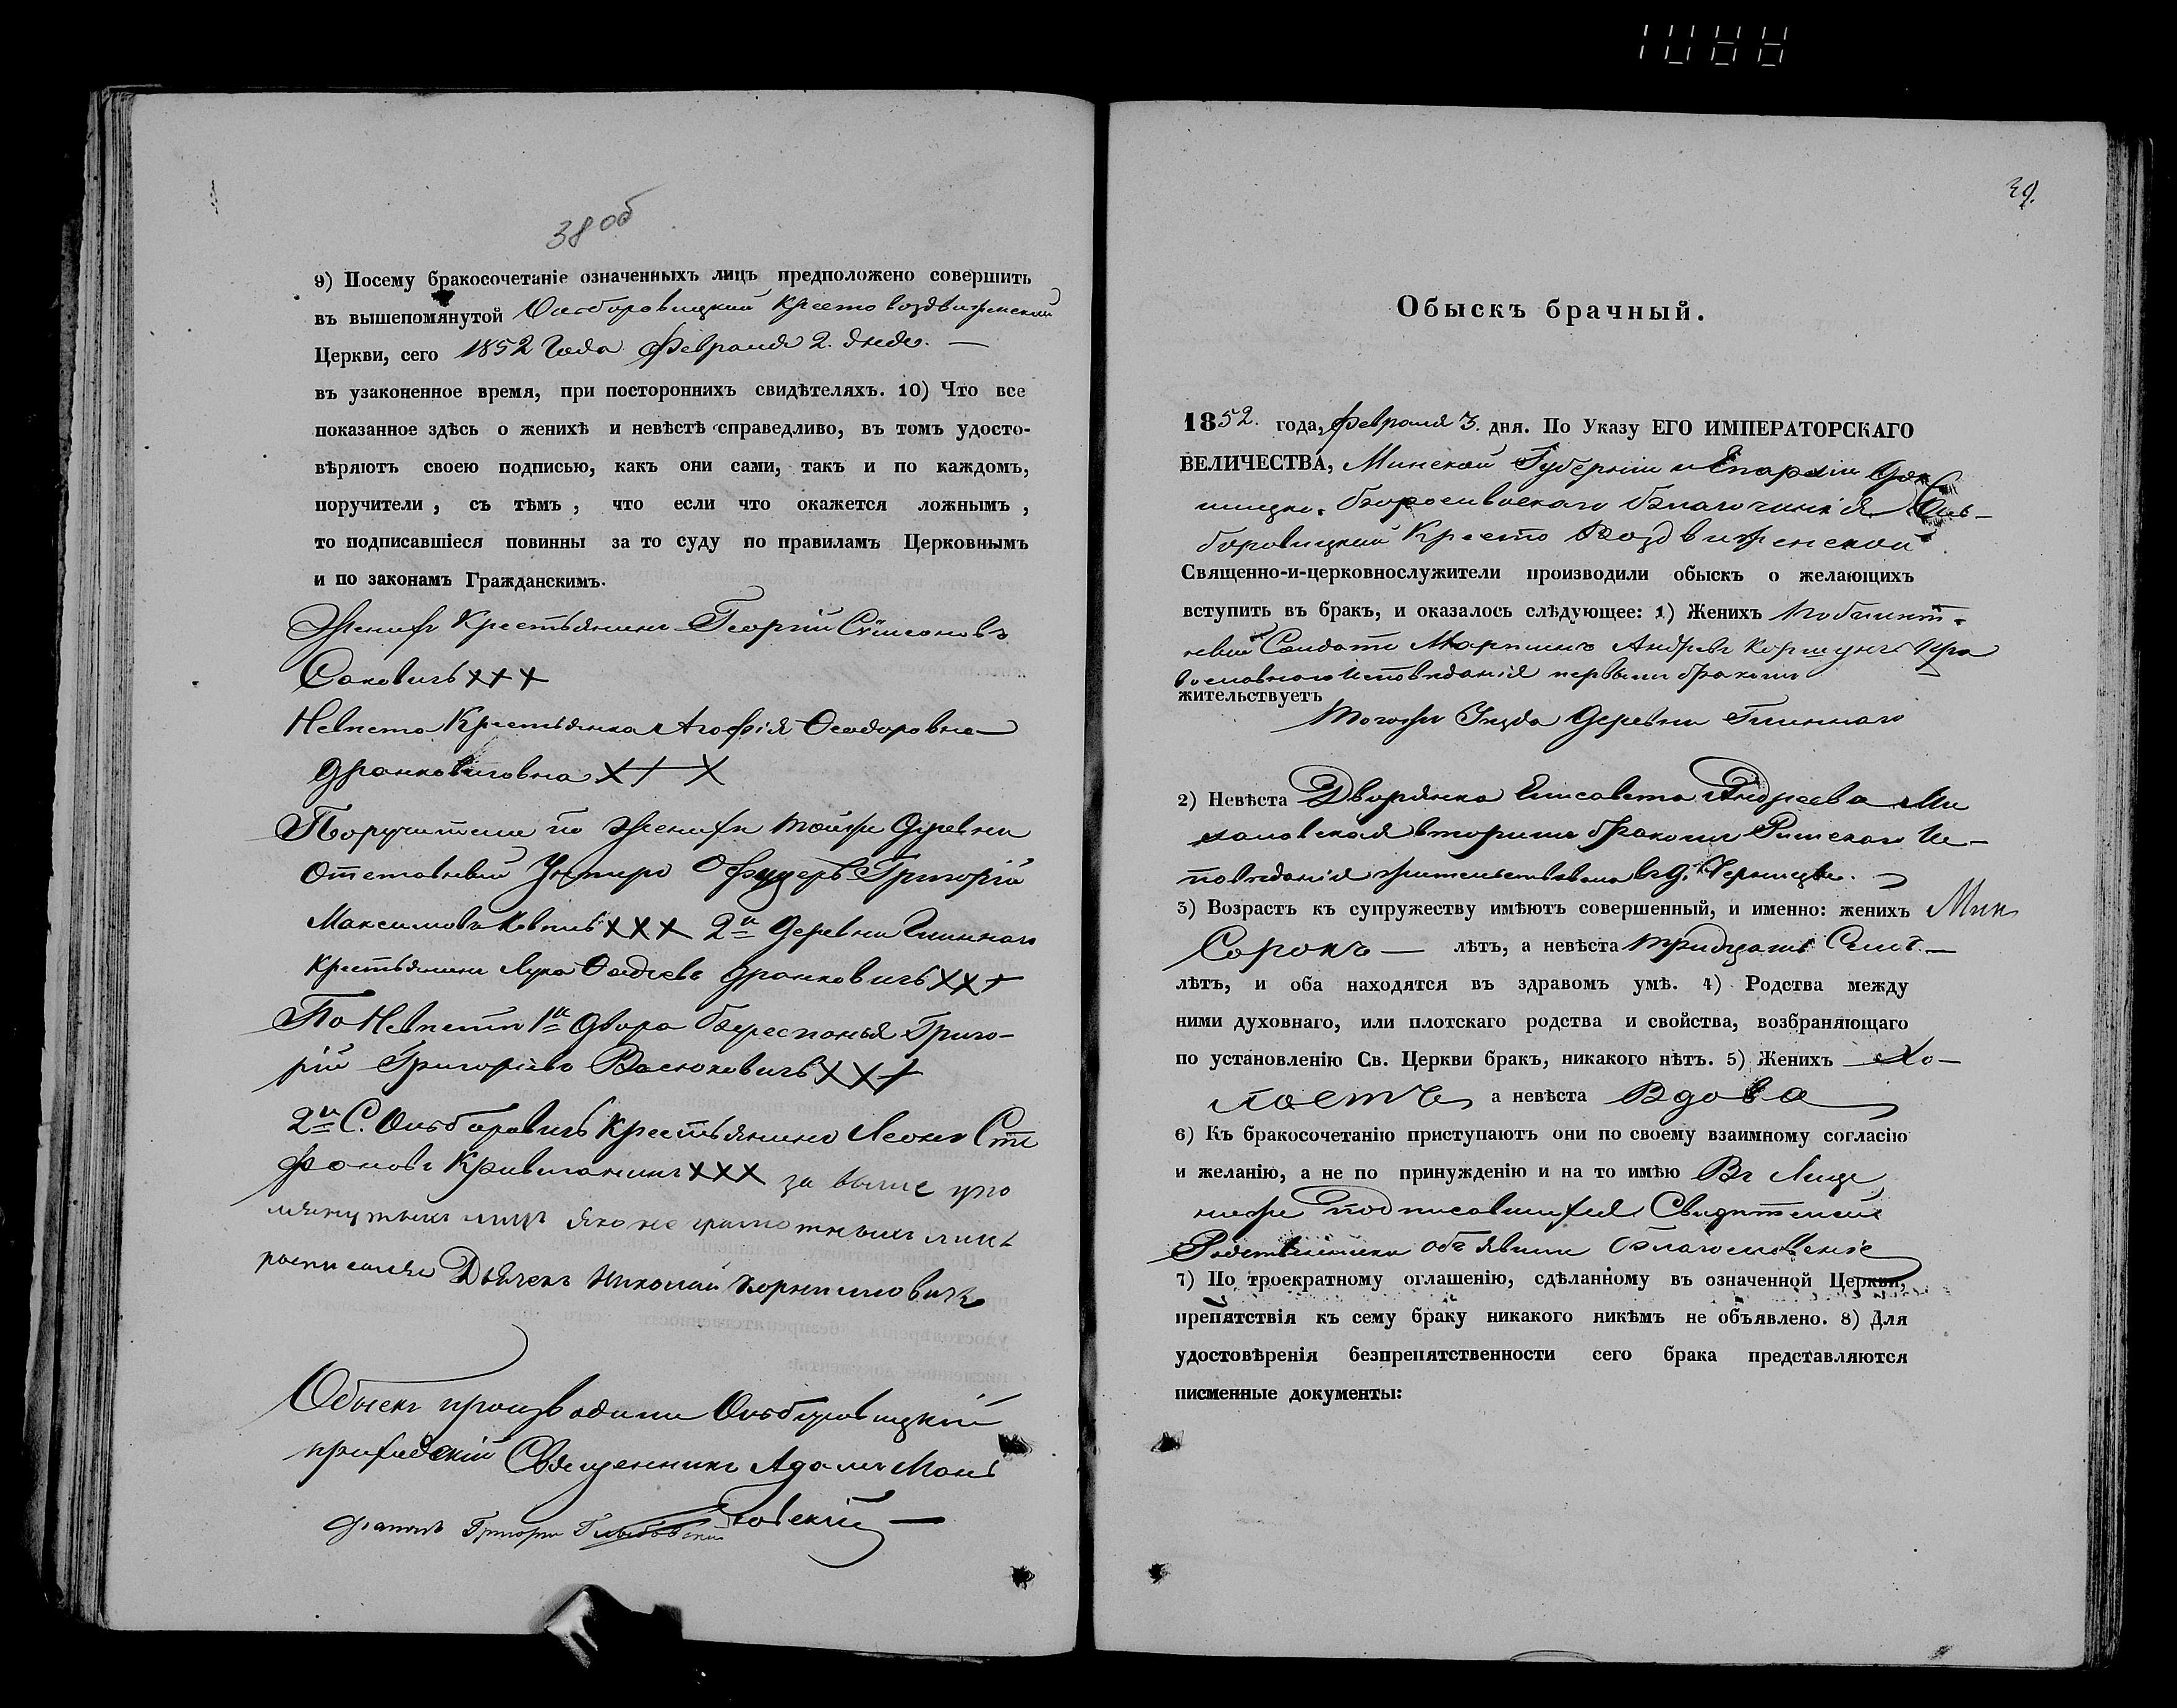 1088
38 об
9) Посему бракосочетаніе означенныхъ лицъ предположено совершить
въ вышепомянутой Ольборовицкой Кресто воздвиженской
Церкви, сего 1852 Года Февраля 2. дня. —
въ узаконенное время, при постороннихъ свидѣтеляхъ. 10) Что все
показанное здѣсь о женихѣ и невѣстѣ справедливо, въ томъ удосто-
вѣряютъ своею подписью, какъ они сами, такъ и по каждомъ,
поручители, съ тѣмъ, что если что окажется ложнымъ,
то подписавшіеся повинны за то суду по правиламъ Церковнымъ
и по законамъ Гражданскимъ.
Женихъ Крестьянинъ Георгій Сѵмеоновъ
Саковичъ ×××
Невѣста Крестьянка Агафія Ѳеодоровна
Дранковичовна ×××
Поручители по Женихѣ тойже Деревни
Отставный Унтеръ Офицеръ Григорій
Максимовъ ××× 2й Деревни Глинного
Крестьянинъ Лука Фадѣевъ Дранковичъ ×××
По Невѣстѣ 1й Двора Григо-
рій Григорьевъ Васюковичъ ×××
2й С. Ольборовичъ Крестьянинъ Леонъ Сте
фановъ ××× за выше упо
мянутыхъ лицъ яко не грамотныхъ лицъ
росписался Дьячекъ Николай
Обыскъ производили Ольборовицкій
приходскій Священникъ Адамъ
Григорій
39.
Обыскъ брачный.
1852. года, Февраля 3. дня. По Указу ЕГО ИМПЕРАТОРСКАГО
ВЕЛИЧЕСТВА, Минской Губерніи и Епархіи Док
шицко-Борисовскаго благочинія Оль-
боровицкой Кресто Воздвиженской
Священно-и-церковнослужители производили обыскъ о желающихъ
вступить въ бракъ, и оказалось слѣдующее: 1) Женихъ
Солдатъ Мартинъ Андреевъ Коршунъ Пра
вославного Исповѣданія первымъ бракомъ
жительствуетъ
Тогоже Уѣзда Деревни Глинного
2) Невѣста Дворянка Елисавета Андреева Ми
халовская вторымъ бракомъ Римского Ис-
повѣданія жительствовала въ д.
3) Возрастъ къ супружеству имѣютъ совершенный, и именно: женихъ
Сорокъ — лѣтъ, а невѣста тридцать Семь —
лѣтъ, и оба находятся въ здравомъ умѣ. 4) Родства между
ними духовнаго, или плотскаго родства и свойства, возбраняющаго
по установленію Св. Церкви бракъ, никакого нѣтъ. 5) Женихъ Хо-
лостъ а невѣста Вдова
6) Къ бракосочетанію приступаютъ они по своему взаимному согласію
и желанію, а не по принужденію и на то имѣю Въ Лице
ниже подписавшихся Свидѣтелей
Родственники объявили благословеніе
7) По троекратному оглашенію, сдѣланному въ означенной Церкви,
препятствія къ сему браку никакого никѣмъ не объявлено. 8) Для
удостовѣренія безпрепятственности сего брака представляются
писменные документы: